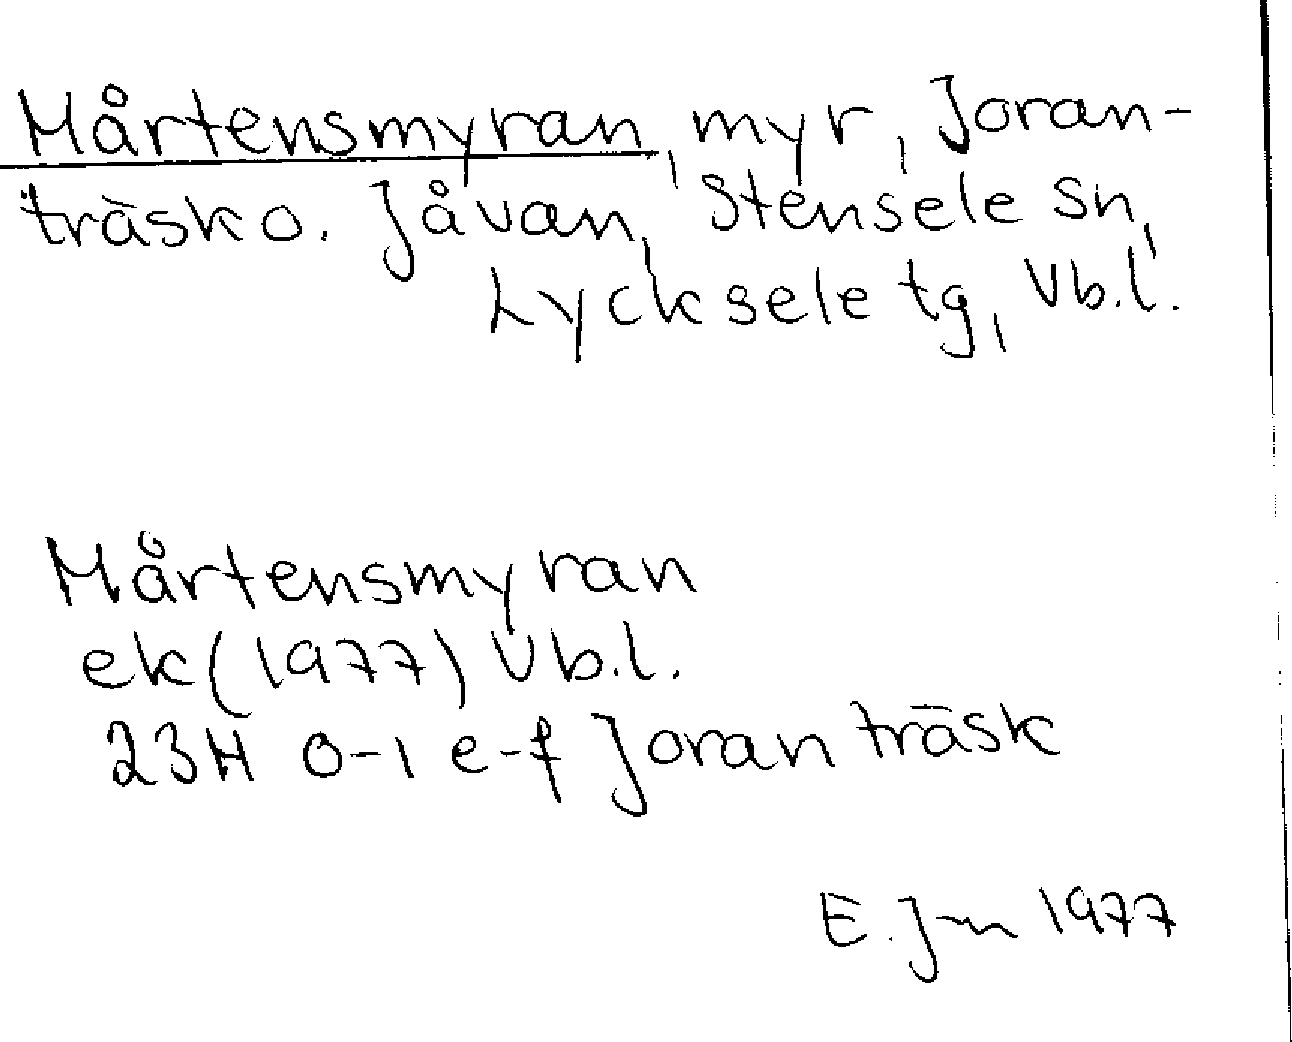 Mårtensmyran, myr, Joran-
träsk o. Jåvan, Stensele sn,
Lycksele tg, Vb.l.
Mårtensmyran
ek (1977) Vb.l.
23H 0-1 e-f Joranträsk
E. Jn 1977